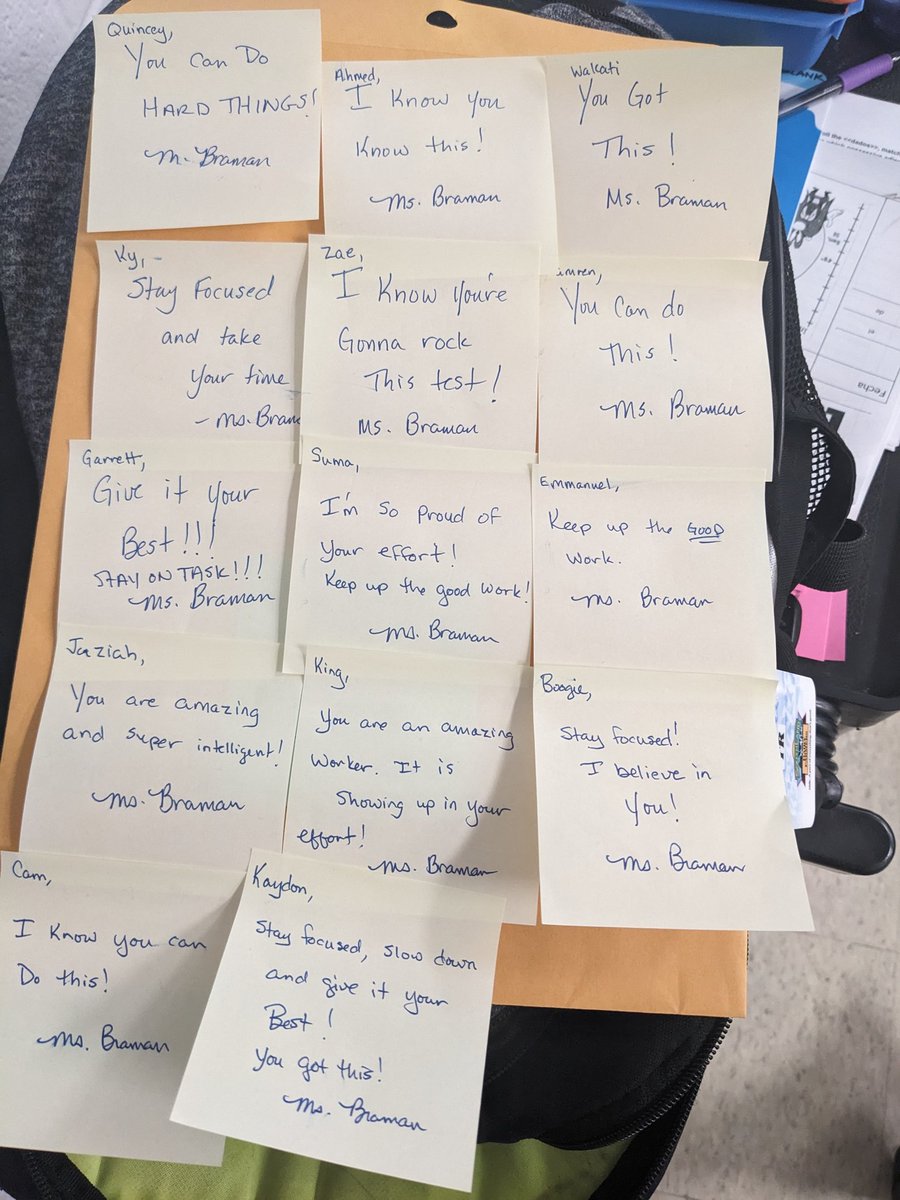 Quincey,
You Can Do
HARD THINGS!
M. Braman
Ahmed,
I Know you
Know this!
Ms. Braman
Walkati
You Got
This!
Ms. Braman
Ky,-
Stay Focused
and take
Your time
- Ms. Bram
Zae,
I Know You're
Gonna rock
This test!
Ms. Braman
mren,
You Can do
This!
Ms. Braman
Garrett,
Give it your
Best!!!
STAY ON TASK!!!
Ms. Braman
Suma,
I'm so Proud of
Your effort!
Keep up the good work!
Ms. Braman
Emmanuel,
Keep up the GOOD
work.
Ms. Braman
Jaziah,
You are amazing
and super intelligent!
Ms. Braman
King,
You are an amazing
Worker. It is
Showing up in your
effort!
Ms. Braman
Boogie,
Stay focused!
I believe in
You!
Ms. Braman
Cam,
I Know you can
Do this!
Ms. Braman
Kaydon,
Stay focused, slow down
and give it your
Best!
You got this!
Ms. Braman
BLANK
Fecha
el
de